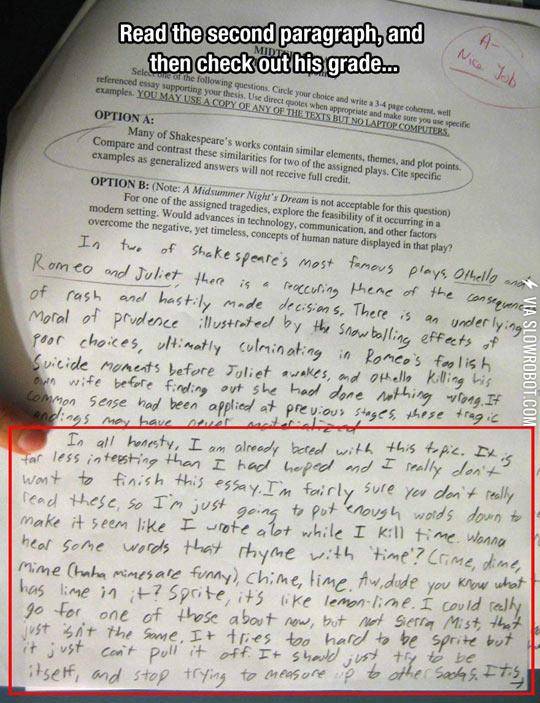 Read the second paragraph, and
then check out his grade...
A-
Nice Job
of the following questions. Circle your choice and write a 3-4 page coherent, well
referenced essay supporting your thesis. Use direct quotes when appropriate and make sure you use specific
examples. YOU MAY USE A COPY OF ANY OF THE TEXTS BUT NO LAPTOP COMPUTERS.
OPTION A:
Many of Shakespeare's works contain similar elements, themes, and plot points.
Compare and contrast these similarities for two of the assigned plays. Cite specific
examples as generalized answers will not receive full credit.
OPTION B: (Note: A Midsummer Night's Dream is not acceptable for this question)
For one of the assigned tragedies, explore the feasibility of it occurring in a
modern setting. Would advances in technology, communication, and other factors
overcome the negative, yet timeless, concepts of human nature displayed in that play?
In two of Shakespeare's most famous plays, Othello and
Romeo and Juliet, there is a reoccuring theme of the consequence
of rash and hastily made decisions. There is an underlying
moral of prudence illustrated by the snowballing effects of
poor choices, ultimatly culminating in Romeo's foolish
suicide moments before Juliet awakes, and Othello killing his
own wife before finding out she had done nothing wrong. If
common sense had been applied at previous stages, these tragic
endings may have never materialized
In all honesty, I am already bored with this topic. It is
far less intersting than I had hoped and I really don't
want to finish this essay. I'm fairly sure you don't really
read these, so I'm just going to put enough words down to
make it seem like I wrote alot while I kill time. Wanna
hear some words that rhyme with 'time'? Crime, dime,
mime (haha mimes are funny), chime, lime. Aw, dude you know what
has lime in it? Sprite, it's like lemon-lime. I could really
go for one of those about now, but not Sierra Mist, that
just isn't the same. It tries too hard to be sprite but
it just can't pull it off. It should just try to be
itself, and stop trying to measure up to other sodas. It is
VIA SLOWROBOT.COM